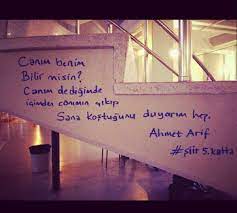 Canım benim
Bilir misin?
Canım dediğinde
içimden canımın çıkıp
Sana koştuğunu duyarım hep.
Ahmet Arif
#şiir 5.katta